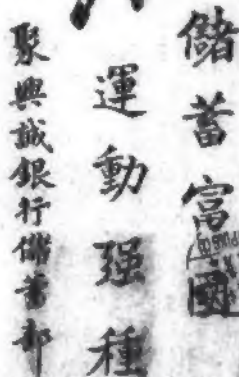 儲蓄富國
運動强種
聚興誠銀行儲蓄部